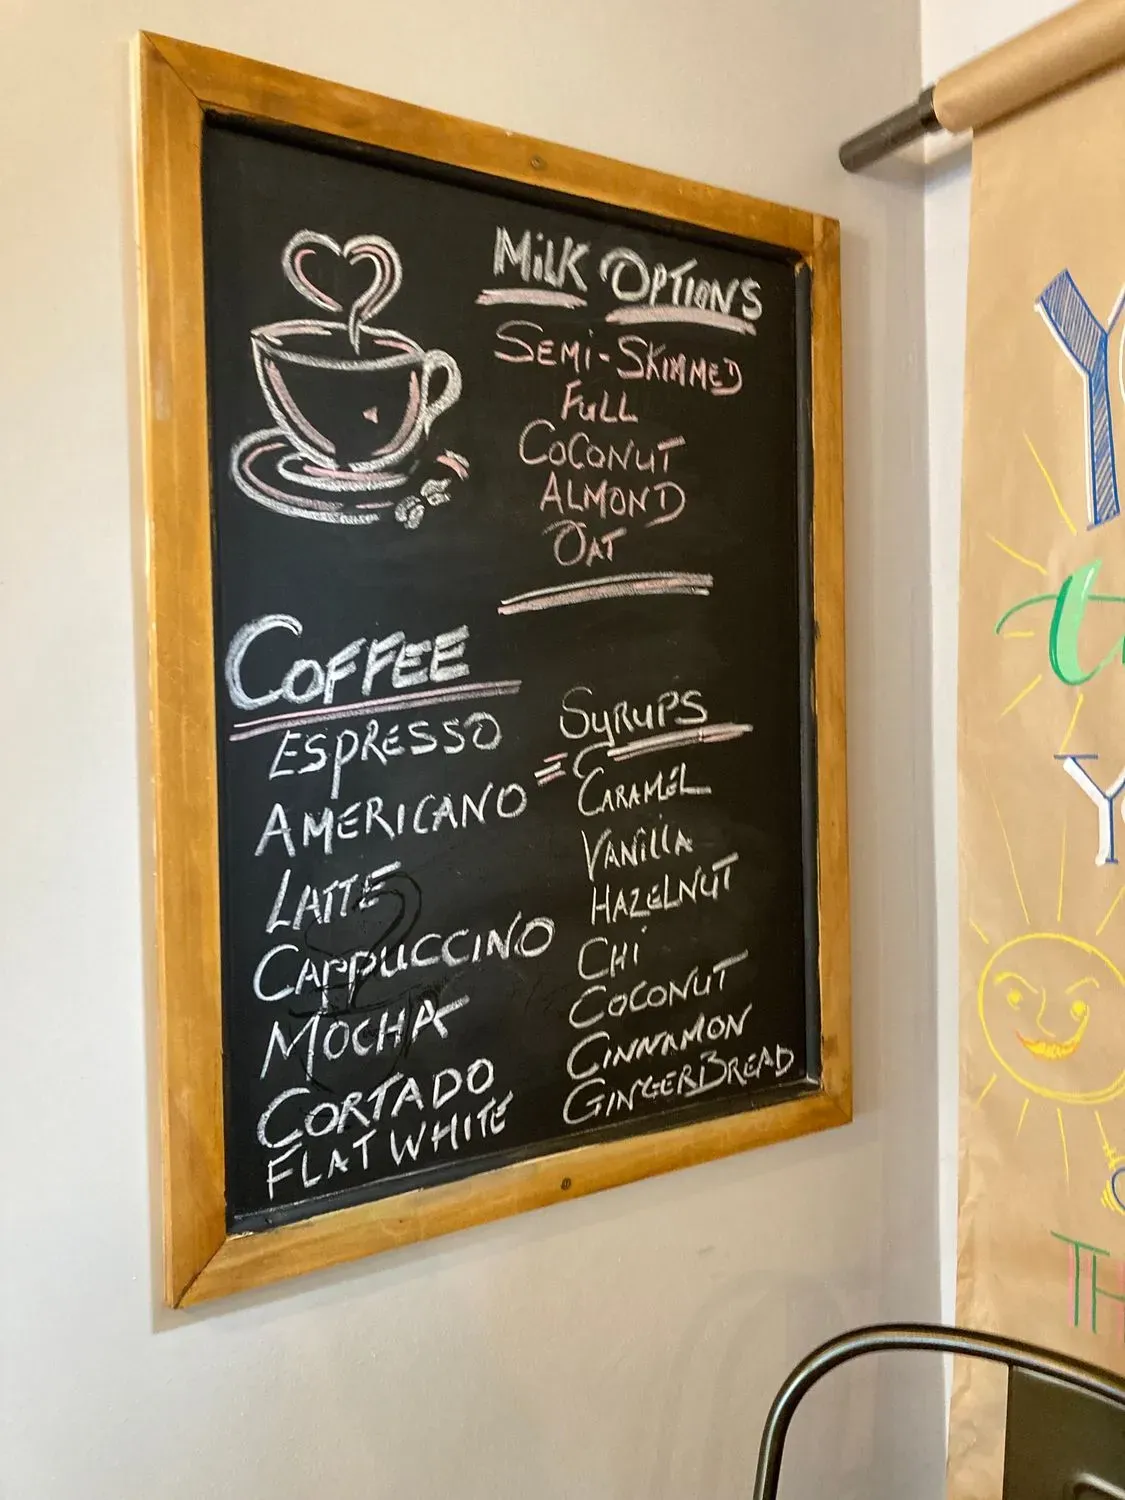 MiLK OPTIONS
SEMi-SKIMMED
FULL
COCONUT
ALMOND
OAT
COFFEE
ESPRESSO
AMERICANO
LATTE
CAPPUCCINO
MOCHA
CORTADO
FLAT WHITE
SYRUPS
CARAMEL
VANILLA
HAZELNUT
CHI
COCONUT
CINNAMON
GINGERBREAD